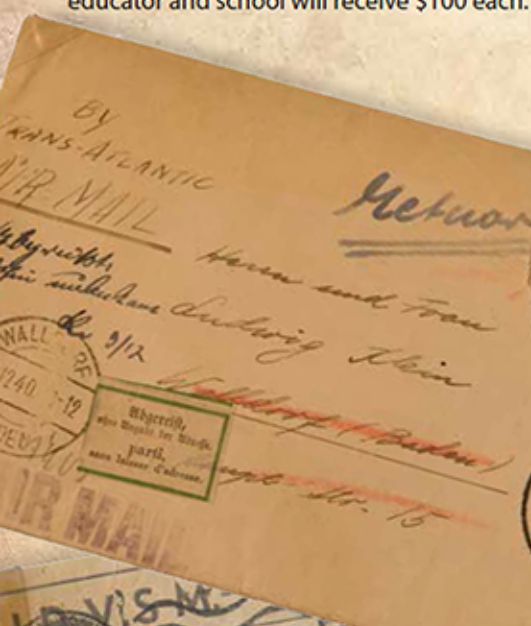 educator and school will receive $100 each.
BY
TRANS-ATLANTIC
AIR MAIL
Retour
Herrn und Frau
Ludwig Klein
Walldorf (Baden)
Str. 15
9/12
WALL
1240 -12
Abgereist,
ohne Angabe der Adresse.
parti,
sans laisser d'adresse.
AIR MAIL